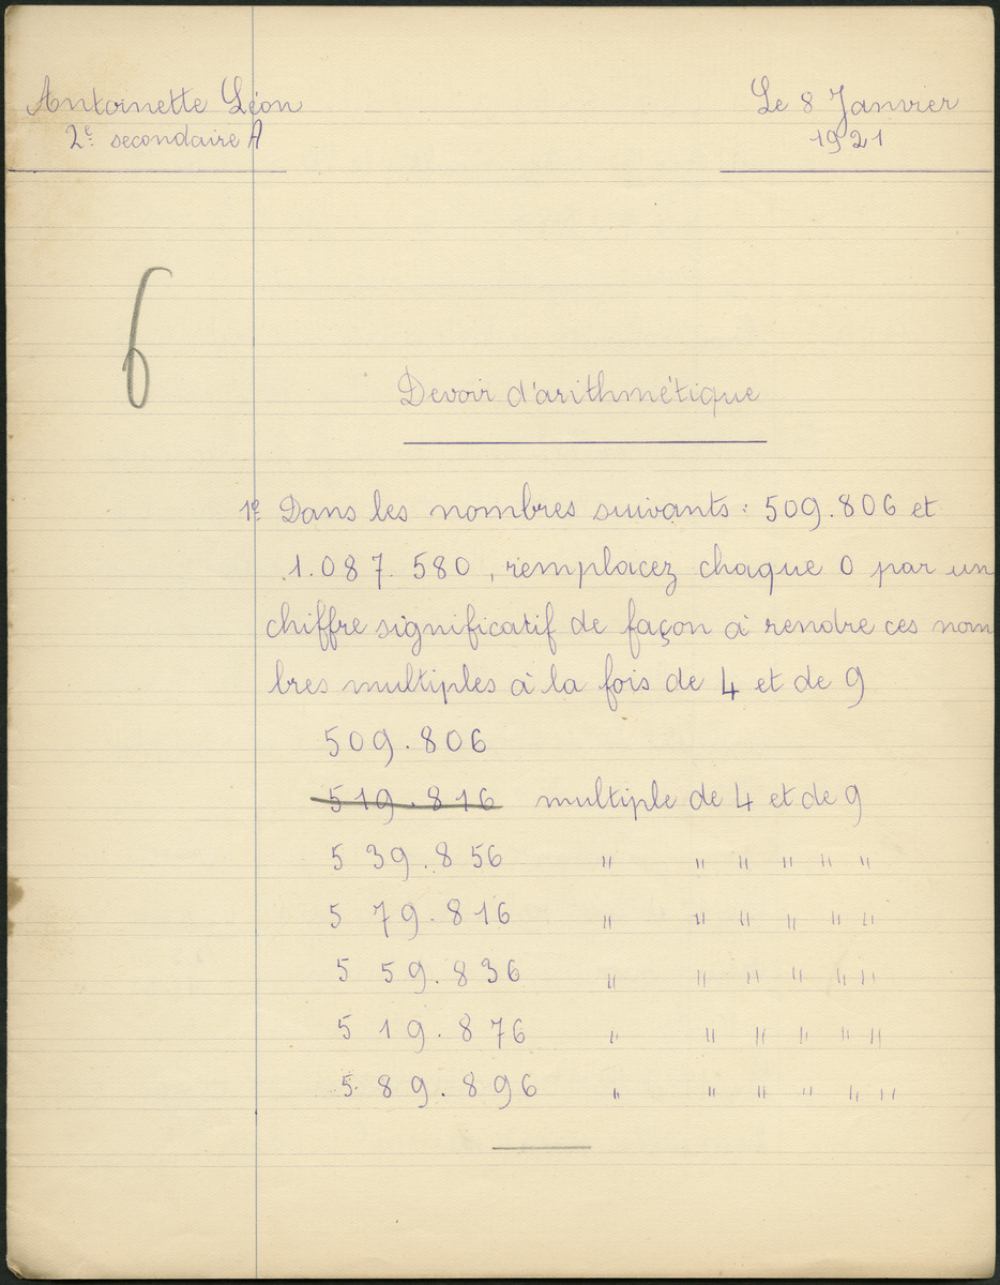 Antoinette Léon
Le 8 Janvier
2e secondaire A
1921
6
Devoir d'arithmétique
1e Dans les nombres suivants : 509.806 et
1.087.580, remplacez chaque 0 par un
chiffre significatif de façon à rendre ces nom
bres multiples à la fois de 4 et de 9
509.806
519.816 multiple de 4 et de 9
539.856 " " " " " "
579.816 " " " " " "
559.836 " " " " " "
519.876 " " " " " "
589.896 " " " " " "